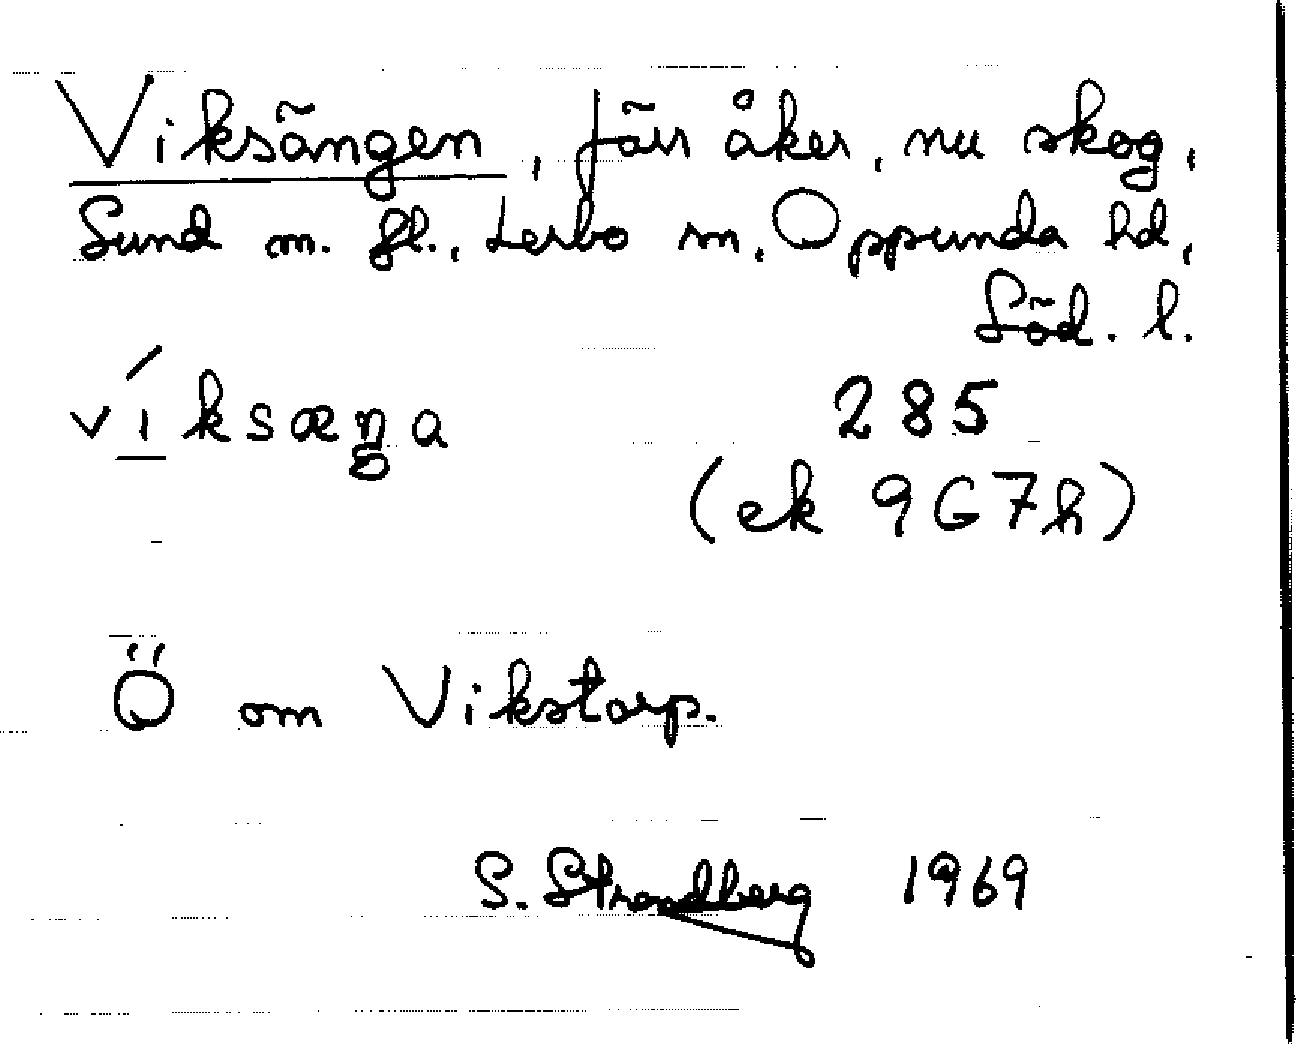 Viksängen, förr åker, nu skog,
Sund m. fl., Lerbo sn, Oppunda hd,
Söd. l.
víksæŋa 285
(ek 9G7h)
Ö om Vikstorp.
S. Strandberg 1969